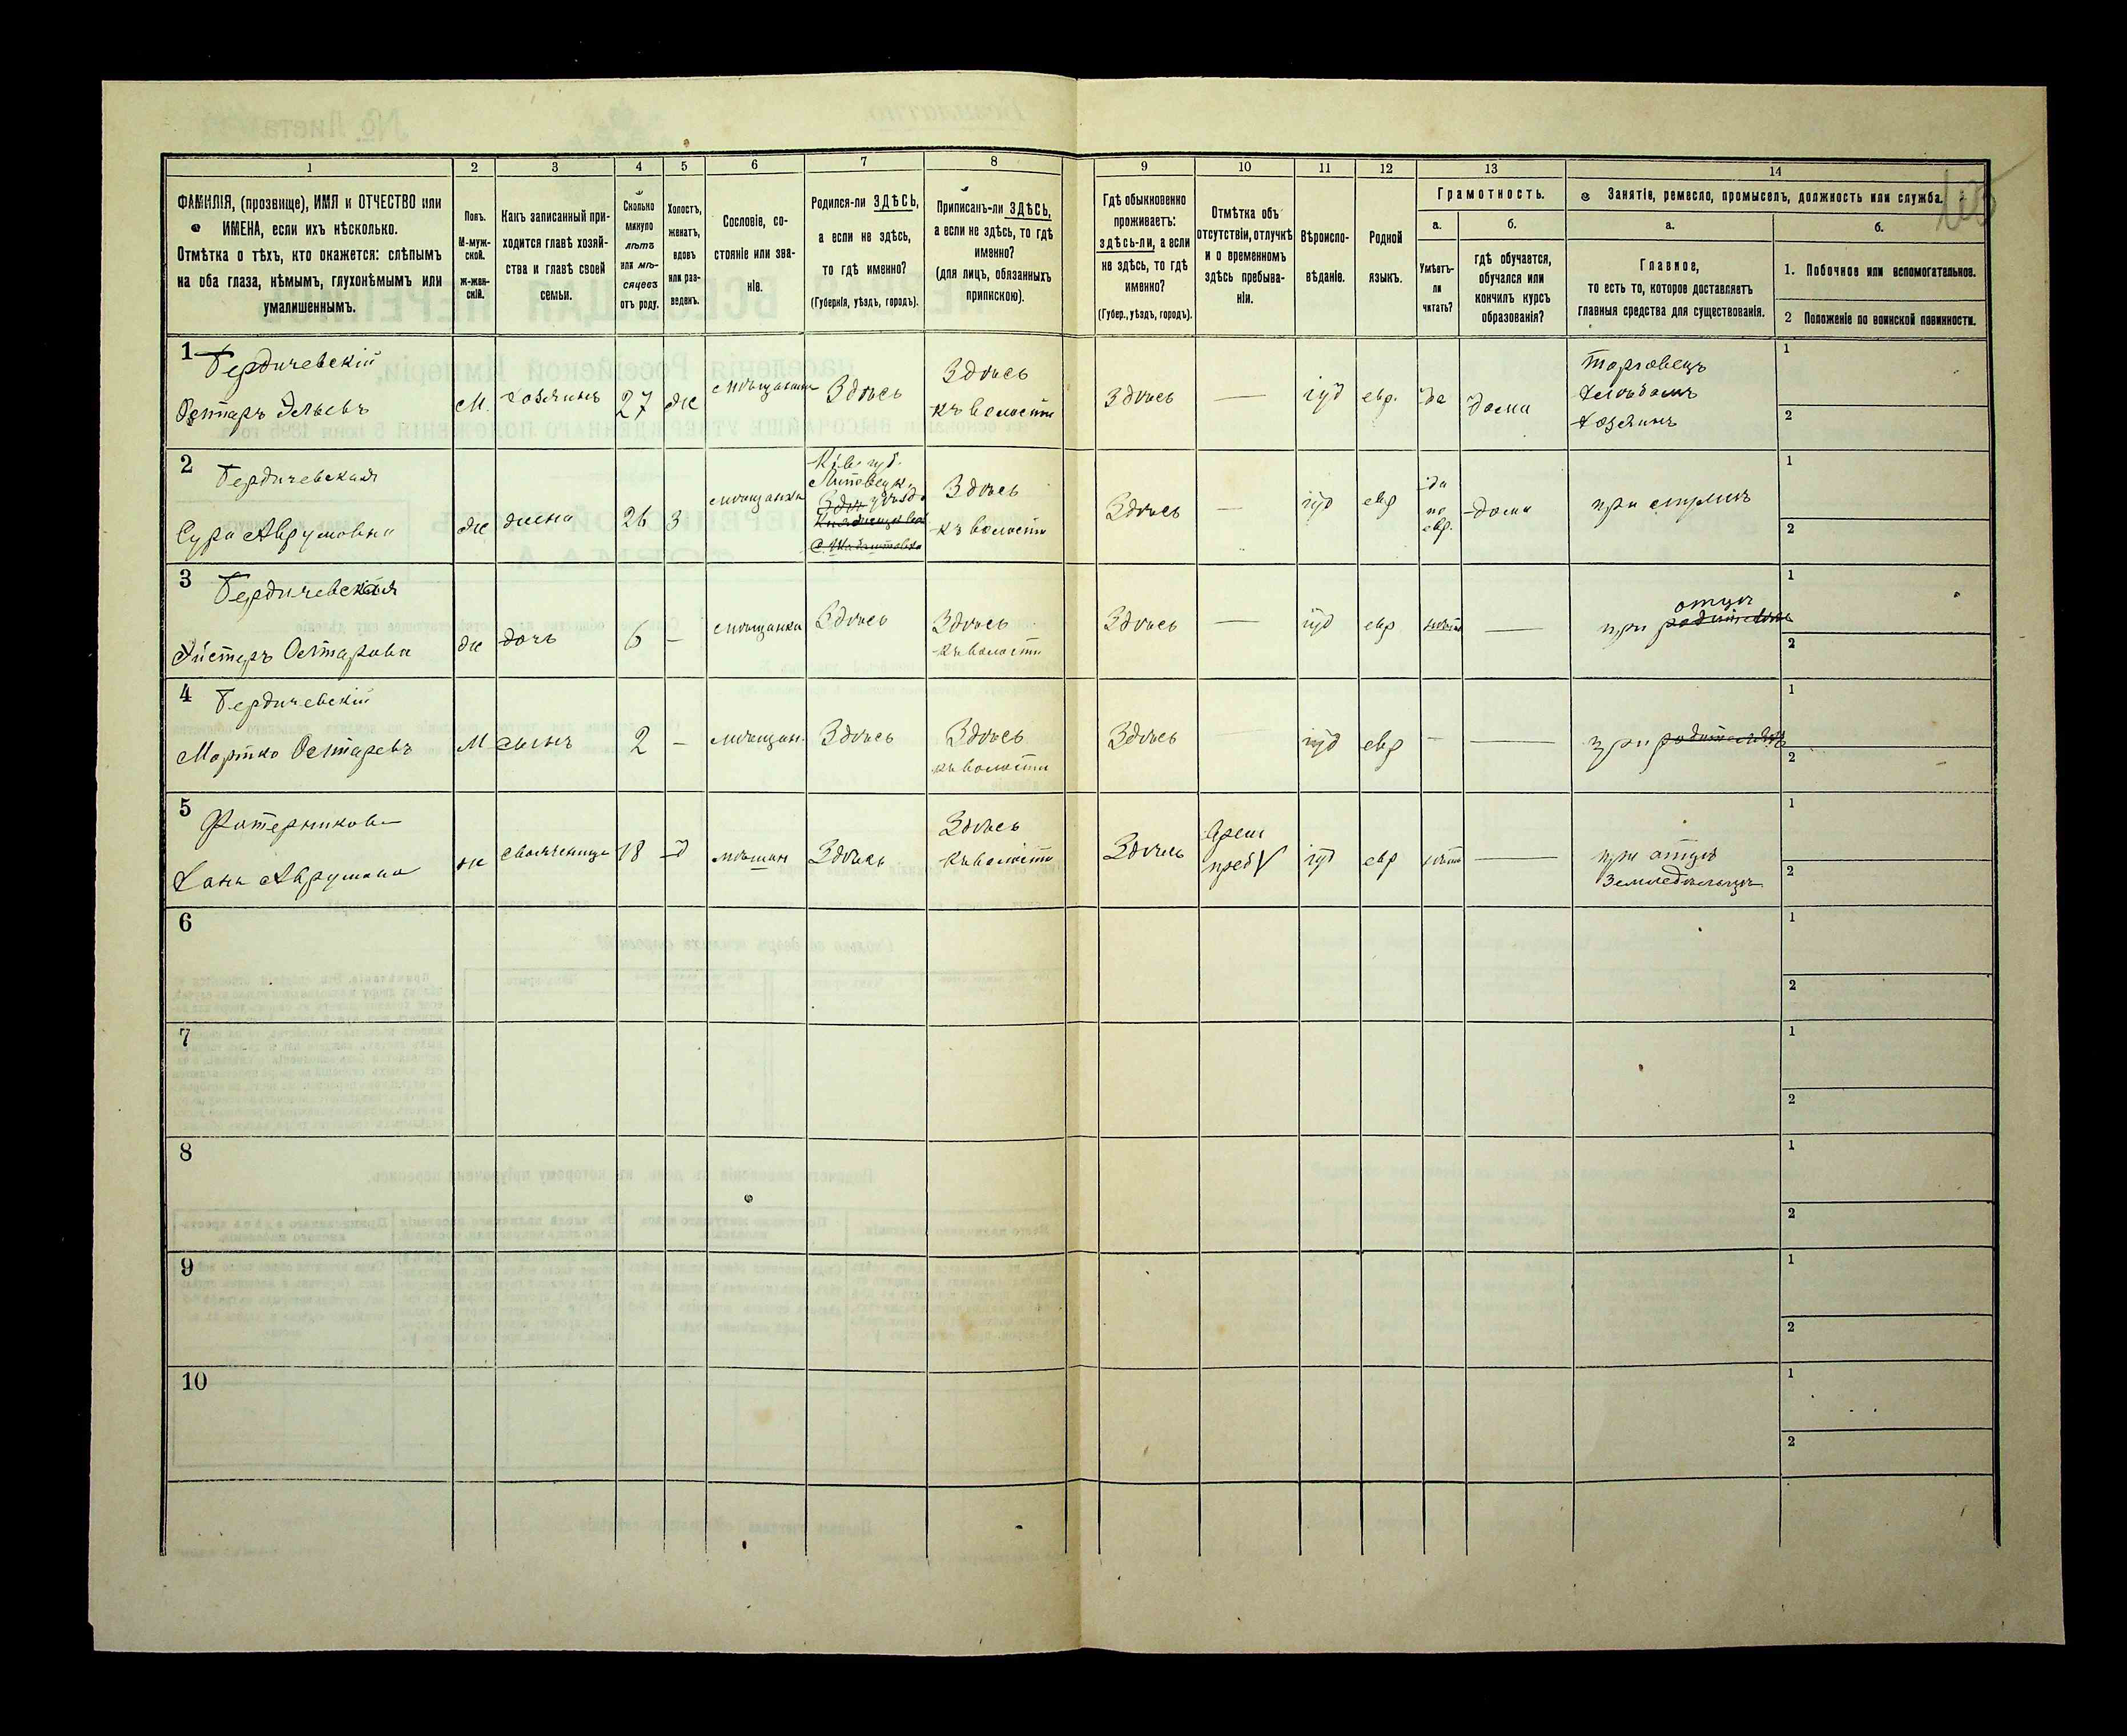 1
2
3
4
5
6
7
8
9
10
11
12
13
14
ФАМИЛІЯ, (прозвище), ИМЯ и ОТЧЕСТВО или
ИМЕНА, если ихъ нѣсколько.
Отмѣтка о тѣхъ, кто окажется: слѣпымъ
на оба глаза, нѣмымъ, глухонѣмымъ или
умалишеннымъ.
Полъ.
М-муж-
ской.
Ж-жен-
скій.
Какъ записанный при-
ходится главѣ хозяй-
ства и главѣ своей
семьи.
Сколько
минуло
лѣтъ
или мѣ-
сяцевъ
отъ роду.
Холостъ,
женатъ,
вдовъ
или раз-
веденъ.
Сословіе, со-
стояніе или зва-
ніе.
Родился-ли ЗДѢСЬ,
а если не здѣсь,
то гдѣ именно?
(Губернія, уѣздъ, городъ).
Приписанъ-ли ЗДѢСЬ,
а если не здѣсь, то гдѣ
именно?
(для лицъ, обязанныхъ
припискою).
Гдѣ обыкновенно
проживаетъ:
здѣсь-ли, а если
не здѣсь, то гдѣ
именно?
(Губер., уѣздъ, городъ).
Отмѣтка объ
отсутствіи, отлучкѣ
и о временномъ
здѣсь пребыва-
ніи.
Вѣроиспо-
вѣданіе.
Родной
языкъ.
Грамотность.
а.
Умѣетъ-
ли
читать?
б.
гдѣ обучается,
обучался или
кончилъ курсъ
образованія?
Занятіе, ремесло, промыселъ, должность или служба.
а.
Главное,
то есть то, которое доставляетъ
главныя средства для существованія.
б.
1. Побочное или вспомогательное.
2 Положеніе по воинской повинности.
1
Бердичевскій
Остаръ Эльевъ
М.
хозяинъ
27
же
мѣщанинъ
Здѣсь
Здѣсь
къ волости
Здѣсь
—
іуд
евр.
да
дома
торговецъ
хозяинъ
1
2
2
Бердичевская
Сура Аврумовна
ж
жена
26
З
мѣщанка
Кіев. губ.
Липовецк.
уѣзда
Здѣсь
къ волости
Здѣсь
—
іуд
евр
да
по
евр.
дома
при мужѣ
1
2
3
Бердичевская
Эстеръ Остарова
ж
дочь
6
—
мѣщанка
Здѣсь
Здѣсь
къ волости
Здѣсь
—
іуд
евр
нѣтъ
—
при отцѣ
родителяхъ
1
2
4
Бердичевскій
Мортко Остаревъ
М
сынъ
2
—
мѣщан.
Здѣсь
Здѣсь
къ волости
Здѣсь
іуд
евр
—
—
при родителяхъ
1
2
5
Хана Аврумова
ж
свояченица
18
д
мѣщан
Здѣсь
Здѣсь
къ волости
Здѣсь
Врем
преб V
іуд
евр
нѣтъ
—
при отцѣ
Земледѣльцѣ
1
2
6
1
2
7
1
2
8
1
2
9
1
2
10
1
2